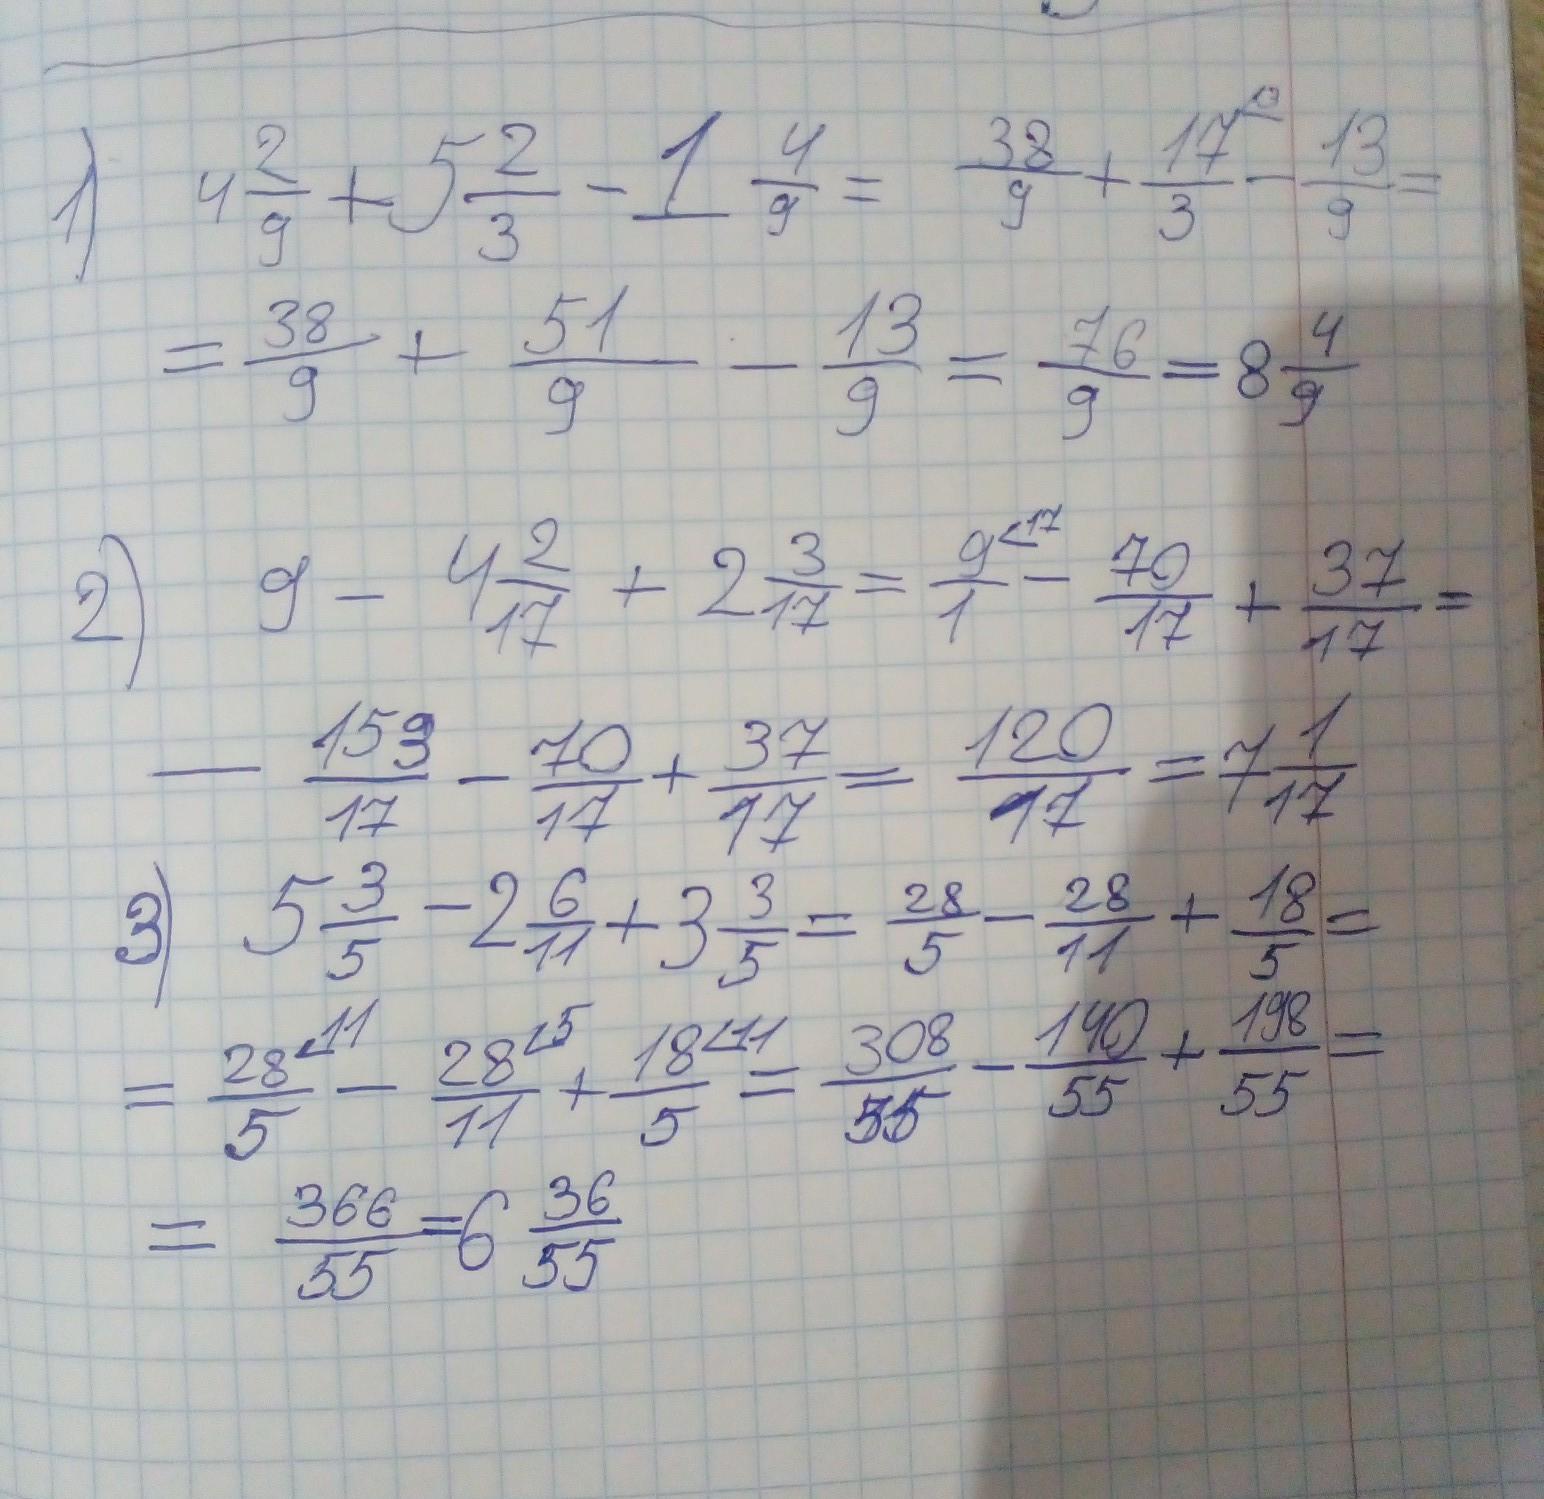 1) 4 2/9 + 5 2/3 - 1 4/9 = 38/9 + 17/3 - 13/9 =
= 38/9 + 51/9 - 13/9 = 76/9 = 8 4/9
2) 9 - 4 2/17 + 2 3/17 = 9<17/1 - 70/17 + 37/17 =
— 153/17 - 70/17 + 37/17 = 120/17 = 7 1/17
3) 5 3/5 - 2 6/11 + 3 3/5 = 28/5 - 28/11 + 18/5 =
= 28<11/5 - 28<5/11 + 18<11/5 = 308/55 - 140/55 + 198/55 =
= 366/55 = 6 36/55